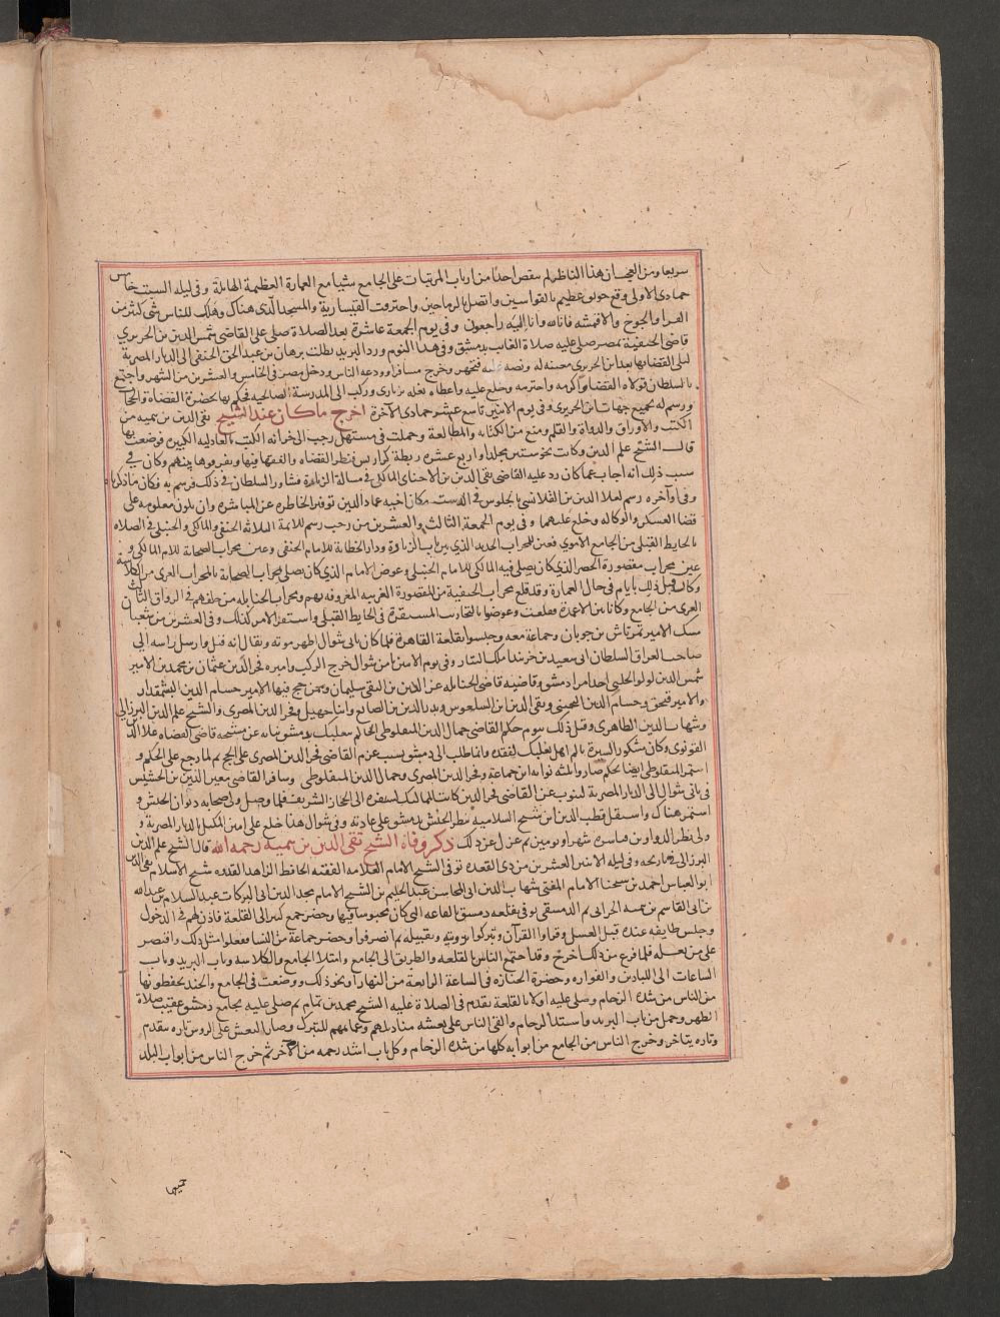 سريعا ومن العجب ان هذا الناظر لم ينقص احدا من ارباب المرتبات على الجامع شيئا مع العمارة العظيمة الهايلة وفي ليلة السبت خامس
جمادى الاولى وقع حريق عظيم بالقواسين واتصل بالرماحين واحترقت القيسارية والمسجد الذي هناك وهلك للناس شي كثير من
الفرا والجوخ والاقمشه فانا لله وانا اليه راجعون وفي يوم الجمعة عاشرة بعد الصلاة صلي على القاضي شمس الدين بن الحريري
قاضي الحنفية بمصر صلي عليه صلاة الغايب بدمشق وفي هذا اليوم ورد البريد بطلب برهان بن عبد الحق الحنفي الى الديار المصرية
ليلي القضا بها بعد ابن الحريري فخرج مسافرا وودعه الناس ودخل مصر في الخامس والعشرين من الشهر واجتمع
بالسلطان فولاه القضا واكرمه واحترمه وخلع عليه واعطاه بغله بزناري وركب الى المدرسة الصالحيه فحكم بها بحضرة القضاة والحجاب
ورسم له بجميع جهات ابن الحريري وفي يوم الاثنين تاسع عشر جمادى الآخرة اخرج ماكان عند الشيخ تقي الدين بن تيميه من
الكتب والاوراق والدواة والقلم ومنع من الكتابه والمطالعة وحملت في مستهل رجب الى خزانه الكتب بالعادليه الكبيره
قال الشيخ علم الدين وكانت نحو ستين مجلدا واربع عشره ربطة كراريس فنظر القضاه والفقها فيها وتفرقوها بينهم وكان
سبب ذلك انه اجاب عما كان رد عليه القاضي تقي الدين بن الاخنائي المالكي في مسالة الزيارة فشاور السلطان في ذلك فرسم به فكان ماذكرنا
وفي اواخره رسم لعلا الدين بن القلانسي بالجلوس في الدست مكان اخيه عماد الدين توفير الخاطره عن المباشره وان يكون معلومه على
قضا العسكر والوكاله وخلع عليهما وفي يوم الجمعة الثالث والعشرين من رجب رسم للايمة الثلاثه الحنفي والمالكي والحنبلي في الصلاه
بالحايط القبلي من الجامع الاموي فعين للمحراب الجديد الذي بين باب الزيادة ودار الخطابة للامام الحنفي وعين محراب الصحابة للامام المالكي و
عين محراب مقصورة الخضر الذي كان يصلي فيه المالكي للامام الحنبلي وعوض الامام الذي كان يصلي بمحراب الصحابة بالمحراب الغربي من
وكان قبل ذلك بايام في حال العمارة وقد قلع محراب الحنفية من المقصورة الغربيه المعروفه بهم ومحراب الحنابله من خلفهم في الرواق الثالث
الغربي من الجامع وكانا بين الاعمدة فقلعت وعوضوا بالمحاريب المستقرة في الحايط القبلي واستقر الامر كذلك وفي العشرين من شعبان
مسك الامير تمرتاش بن جوبان وجماعة معه وحبسوا بقلعة القاهرة فلما كان ثاني شوال اظهر موته ويقال انه قتل وارسل راسه الى
صاحب العراق السلطان ابي سعيد بن خربندا ملك التتار وفي يوم الاثنين ثامن شوال خرج الركب واميره فخر الدين عثمان بن محمد بن الامير
شمس الدين لولو الحلبي احد امرا دمشق وقاضيه قاضي الحنابله عز الدين بن التقي سليمان وممن حج فيها الامير حسام الدين البشمقدار
والامير قبجق وحسام الدين وتقي الدين بن السلعوس وبدر الدين بن الصايغ وابنا جهبل وفخر الدين المصري والشيخ علم الدين البرزالي
وشهاب الدين الظاهري وقبل ذلك بيوم حكم القاضي جمال الدين المنفلوطي الحاكم ببعلبك بدمشق نيابه عن شيخه قاضي القضاه علا الدين
القونوي وكان مشكور السيرة اهل بعلبك لفقده وانما طلب الى دمشق بسبب عزم القاضي فخر الدين المصري على الحج ثم لما رجع على الحكم و
استمر المنفلوطي ايضا يحكم صاروا ثلاثة نوابه ابن جماعة وفخر الدين المصري وجمال الدين المنفلوطي وسافر القاضي معين الدين بن الحشيش
في ثاني شوال الى الديار المصرية لينوب عن القاضي فخر الدين كاتب المماليك لسفره الى الحجاز الشريف فلما وصل ولي صحابه ديوان الجيش و
استمر هناك واستقل قطب الدين ابن شيخ السلاميه بنظر الجيش بدمشق على عادته وفي شوال هذا خلع على امين الملك بالديار المصرية و
ولي نظر الدواوين فباشره شهرا ويومين ثم عزل عن ذلك ذكر وفاة الشيخ تقي الدين بن تيميه رحمه الله قال الشيخ علم الدين
البرزالي في تاريخه وفي ليلة الاثنين العشرين من ذي القعده توفي الشيخ الامام العلامه الفقيه الحافظ الزاهد القدوه شيخ الاسلام تقي الدين
ابو العباس احمد بن شيخنا الامام المفتي شهاب الدين ابي المحاسن عبد الحليم بن الشيخ الامام مجد الدين ابي البركات عبد السلام بن عبد الله
بن ابي القاسم بن تيميه الحراني ثم الدمشقي توفي بقلعه دمشق بالقاعه التي كان محبوسا فيها وحضر جمع كثير الى القلعة فاذن لهم في الدخول
وجلس طايفه عنده قبل الغسل وقراوا القرآن وتبركوا برويته وتقبيله ثم انصرفوا وحضر جماعة من النسا ففعلوا مثل ذلك واقتصر
على من يغسله فلما فرغ من ذلك اخرج وقد اجتمع الناس بالقلعه والطريق الى الجامع وامتلا الجامع والكلاسه وباب البريد وباب
الساعات الى اللبادين والفواره وحضرت الجنازه في الساعة الرابعة من النهار او نحو ذلك ووضعت في الجامع والجند يحفظونها
من الناس من شده الزحام وصلي عليه اولا بالقلعة تقدم في الصلاة عليه الشيخ محمد بن تمام ثم صلي عليه بجامع دمشق عقيب صلاة
الظهر وحمل من باب البريد واشتد الزحام والقي الناس على نعشه مناديلهم وعمايمهم للتبرك وصار النعش على الروس تاره يتقدم
وتاره يتاخر وخرج الناس من الجامع من ابوابه كلها من شده الزحام وكل باب اشد زحمه من الآخر ثم خرج الناس من ابواب البلد
جميعها